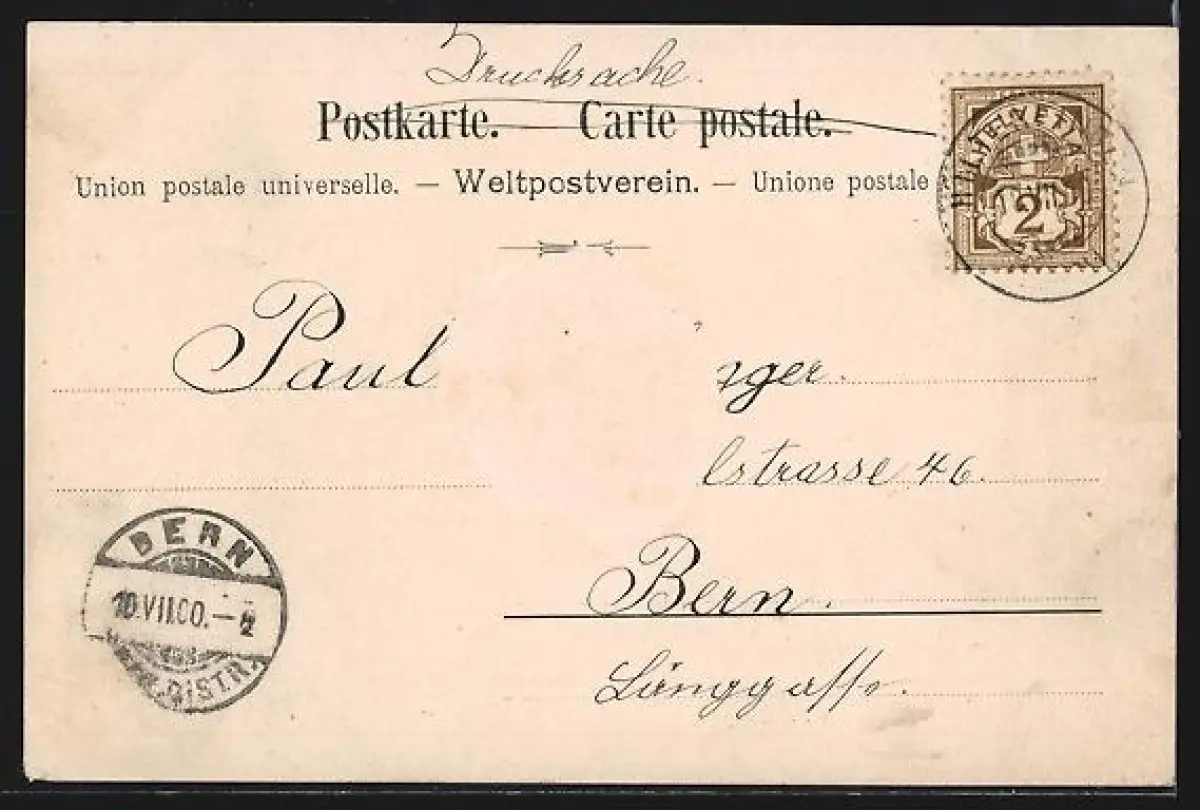 Drucksache.
Postkarte. Carte postale.
Union postale universelle. — Weltpostverein. — Unione postale
HELVETIA
2
Paul ger.
lstrasse 46.
Bern.
Länggasse.
BERN
10.VII.00.–
DISTR.